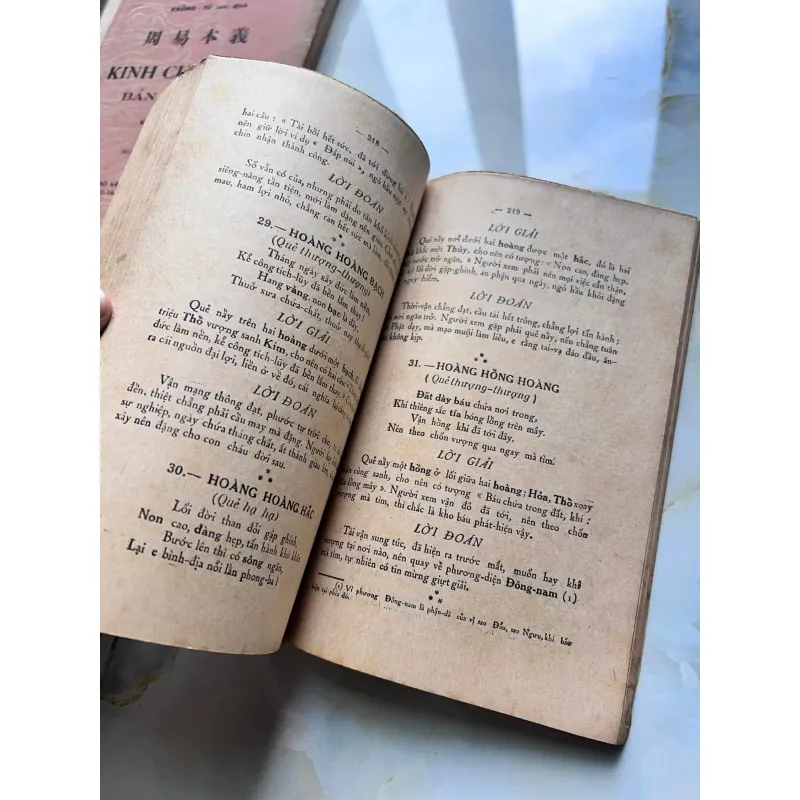 KHỔNG-TỬ san định
周易本義
KINH CH
BẢN
— 218 —
hai câu : « Tài bồi hết sức, đã tới đừng
nên giữ lời ví dụ « Đắp núi », ngõ hầu một
chín nhận thành công.
LỜI ĐOÁN
Số vẫn có của, nhưng phải do tân khổ
siêng-năng tần tiện, mới làm đặng nên giàu.
mau, ham lợi nhỏ, chẳng rán hết sức mà làm,
29.— HOÀNG HOÀNG BẠCH
(Quẻ thượng-thượng)
Tháng ngày xây đức làm nên,
Kể công tích-lũy đã bền lắm thay !
Hang vàng, non bạc là đây,
Thuở xưa chứa-chất, thuở nay
LỜI GIẢI
Quẻ nầy trên hai hoàng dưới một bạch,
triệu Thổ vượng sanh Kim, cho nên có hai câu :
đức làm nên, kể công tích-lũy đã bền lắm thay ».
ra cái nguồn đại lợi, liền ở về đó, cái nghĩa
LỜI ĐOÁN
Vận mạng thông đạt, phước tự trời cho,
đến, thiệt chẳng phải cầu may mà đặng. Người
sự nghiệp, ngày chứa tháng chất, ắt thành giàu
xây nên đặng cho con cháu đời sau.
30.— HOÀNG HOÀNG HẮC
(Quẻ hạ hạ)
Lối dời than đỗi gập ghình,
Non cao, đàng hẹp, tấn hành khó khăn.
Bước lên thì có sông ngăn,
Lại e bình-địa nổi lần phong-ba !
— 219 —
LỜI GIẢI
Quẻ nầy nơi dưới hai hoàng được một hắc, đó là hai
khắc một Thủy, cho nên có tượng : « Non cao, đàng hẹp,
trở ngăn. » Người xem phải nên mọi việc cẩn thận,
lối dời gập-ghình, an phận qua ngày, ngõ hầu khỏi đặng
nguy hiểm.
LỜI ĐOÁN
Thời-vận chẳng đạt, cầu tài hết trông, chẳng lợi tấn hành ;
nơi ngăn trở. Người xem gặp phải quẻ nầy, nếu chẳng tuân
Phật dạy, mà mạo muội làm liều, e rằng tai-vạ đáo đầu, ăn-
không kịp.
31. — HOÀNG HỒNG HOÀNG
( Quẻ thượng-thượng )
Đất dày báu chứa nơi trong,
Khí thiêng sắc tía bóng lồng trên mây.
Vận hồng khi đã tới đây,
Nên theo chốn vượng qua ngay mà tìm.
LỜI GIẢI
Quẻ nầy một hồng ở lối giữa hai hoàng ; Hỏa, Thổ xoay
vần cùng sanh, cho nên có tượng « Báu chứa trong đất, khí
lồng mây ». Người xem vận đỏ đã tới, nên theo chốn
vượng mà tìm, thì chắc là kho báu phát-hiện vậy.
LỜI ĐOÁN
Tài vận sung túc, đã hiện ra trước mắt, muốn hay khí
vượng tại nơi nào, nên quay về phương-diện Đông-nam (1)
mà tìm, tự nhiên có tin mừng giựt giải.
(1) Vì phương Đông-nam là phận-dã của vị sao Đẩu, sao Ngưu, khi báu
hiện tại phía đó.